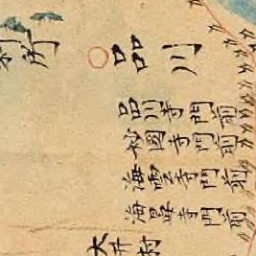 品川
品川寺門前
妙国寺門前
海雲寺門前
海晏寺門前
大井村